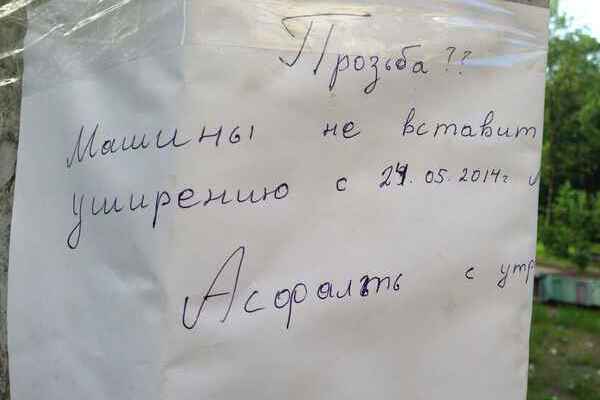 Прозьба??
Машины не вставит
уширению с 24.05.2014г
Асфалть с утр